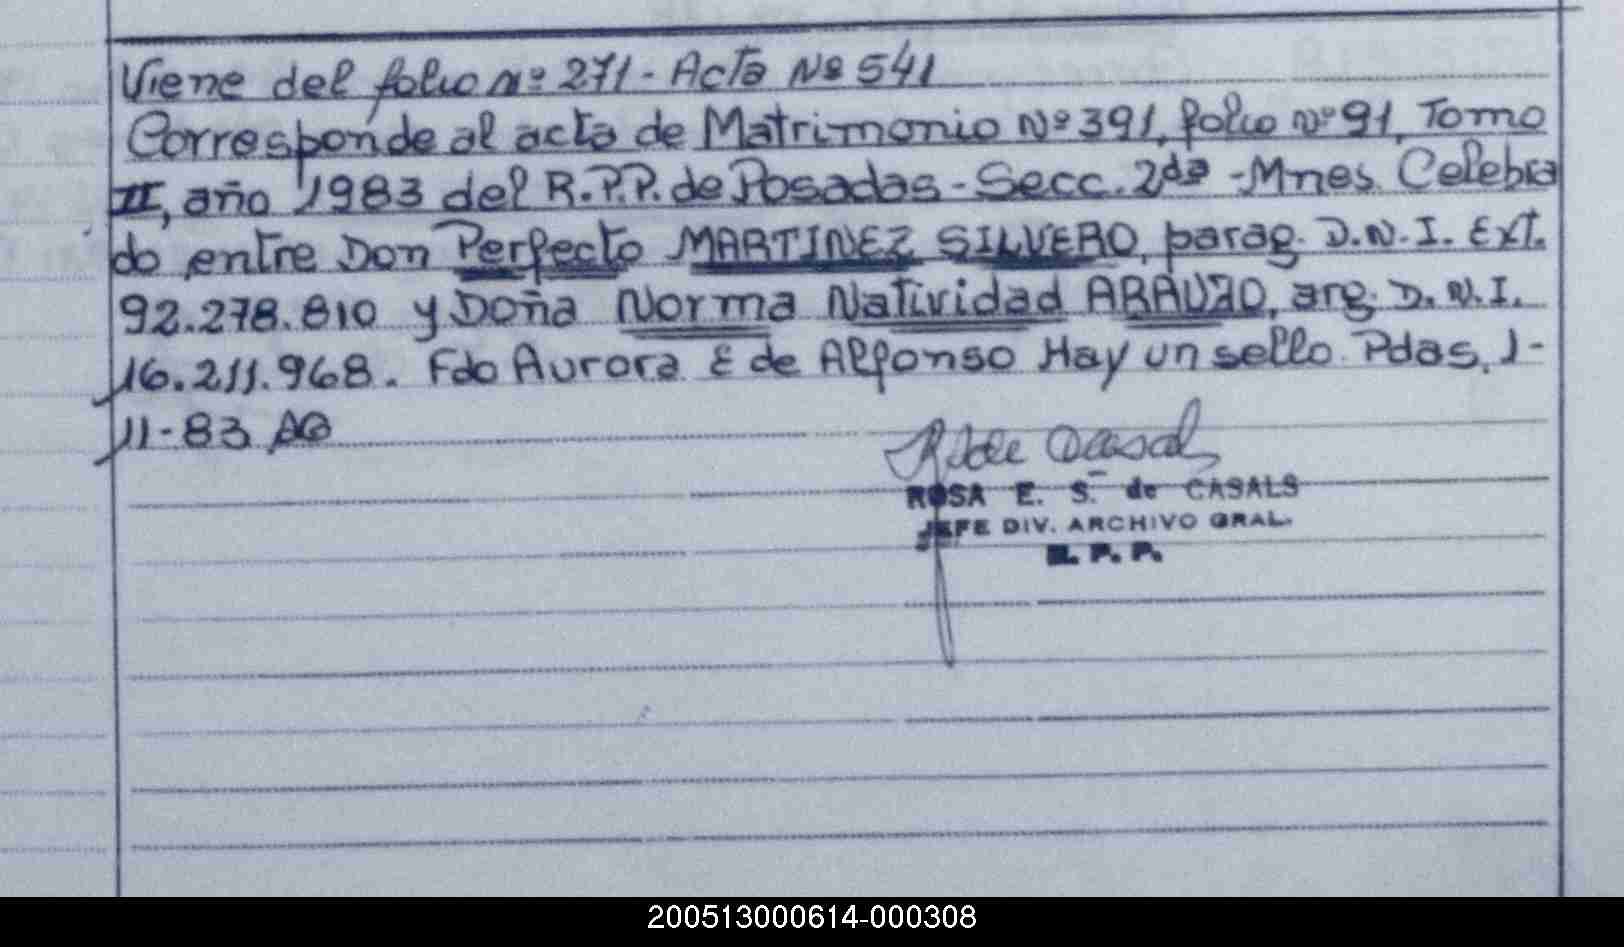 Viene del folio Nº 271 - Acta Nº 541
Corresponde al acta de Matrimonio Nº 391, folio Nº 91, Tomo
II, año 1983 del R.P.P. de Posadas - Secc. 2da - Mnes. Celebra
do entre Don Perfecto MARTINEZ SILVERO, parag. D.N.I. Ext.
92.278.810 y Doña Norma Natividad ARAUJO, arg. D.N.I.
16.211.968. Fdo Aurora E de Alfonso Hay un sello. Pdas, 1-
11-83
ROSA E. S. de CASALS
JEFE DIV. ARCHIVO GRAL.
R. P. P.
200513000614-000308